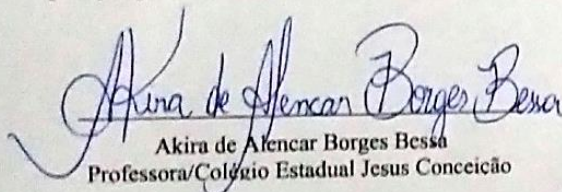 Akira de Alencar Borges Bessa
Akira de Alencar Borges Bessa
Professora/Colégio Estadual Jesus Conceição